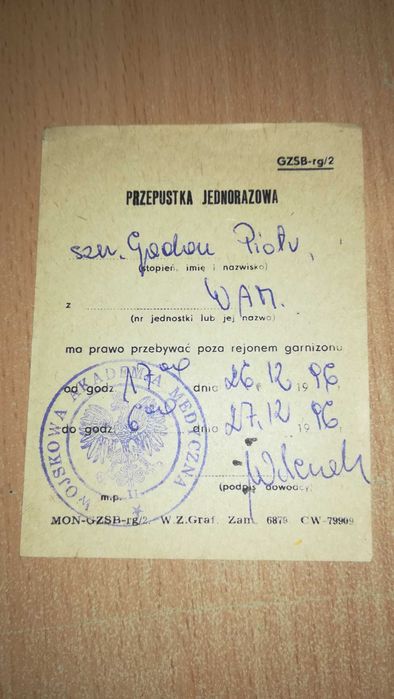 GZSB-rg/2
PRZEPUSTKA JEDNORAZOWA
szer. Piotr
(stopień, imię i nazwisko)
z WAM.
(nr jednostki lub jej nazwa)
ma prawo przebywać poza rejonem garnizonu
od godz. 17 00 dnia 26.12 1996
do godz. 6 00 dnia 27.12 1996
(podpis dowódcy)
m.p.
WOJSKOWA AKADEMIA MEDYCZNA
II
MON-GZSB-rg/2. W.Z.Graf. Zam. 6879 CW-79909